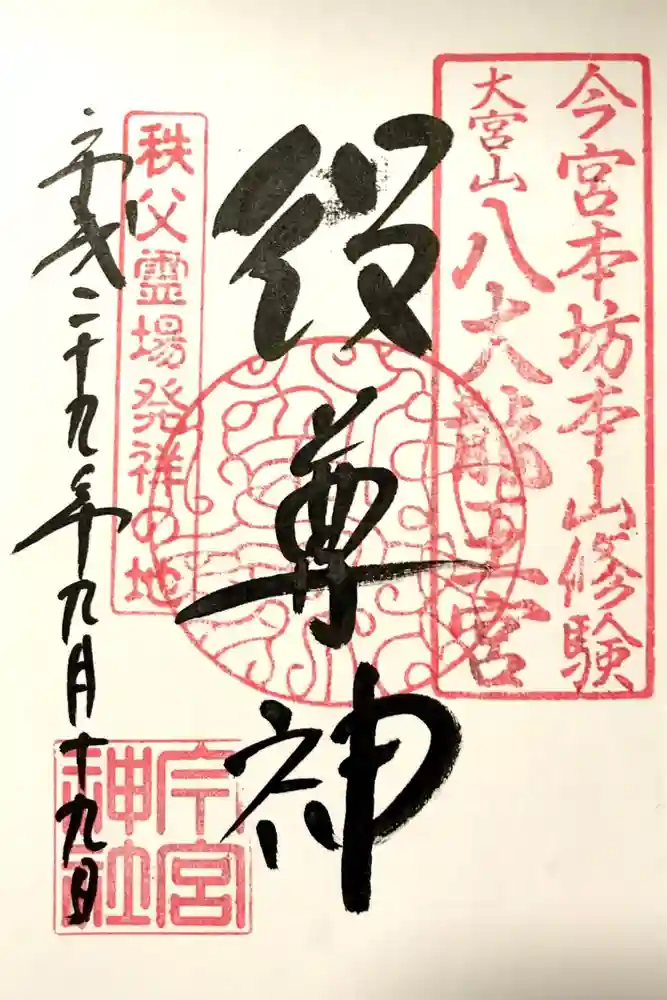 今宮本坊本山修験
大宮山八大龍王宮
役尊神
秩父霊場発祥の地
平成二十九年九月十九日
今宮神社